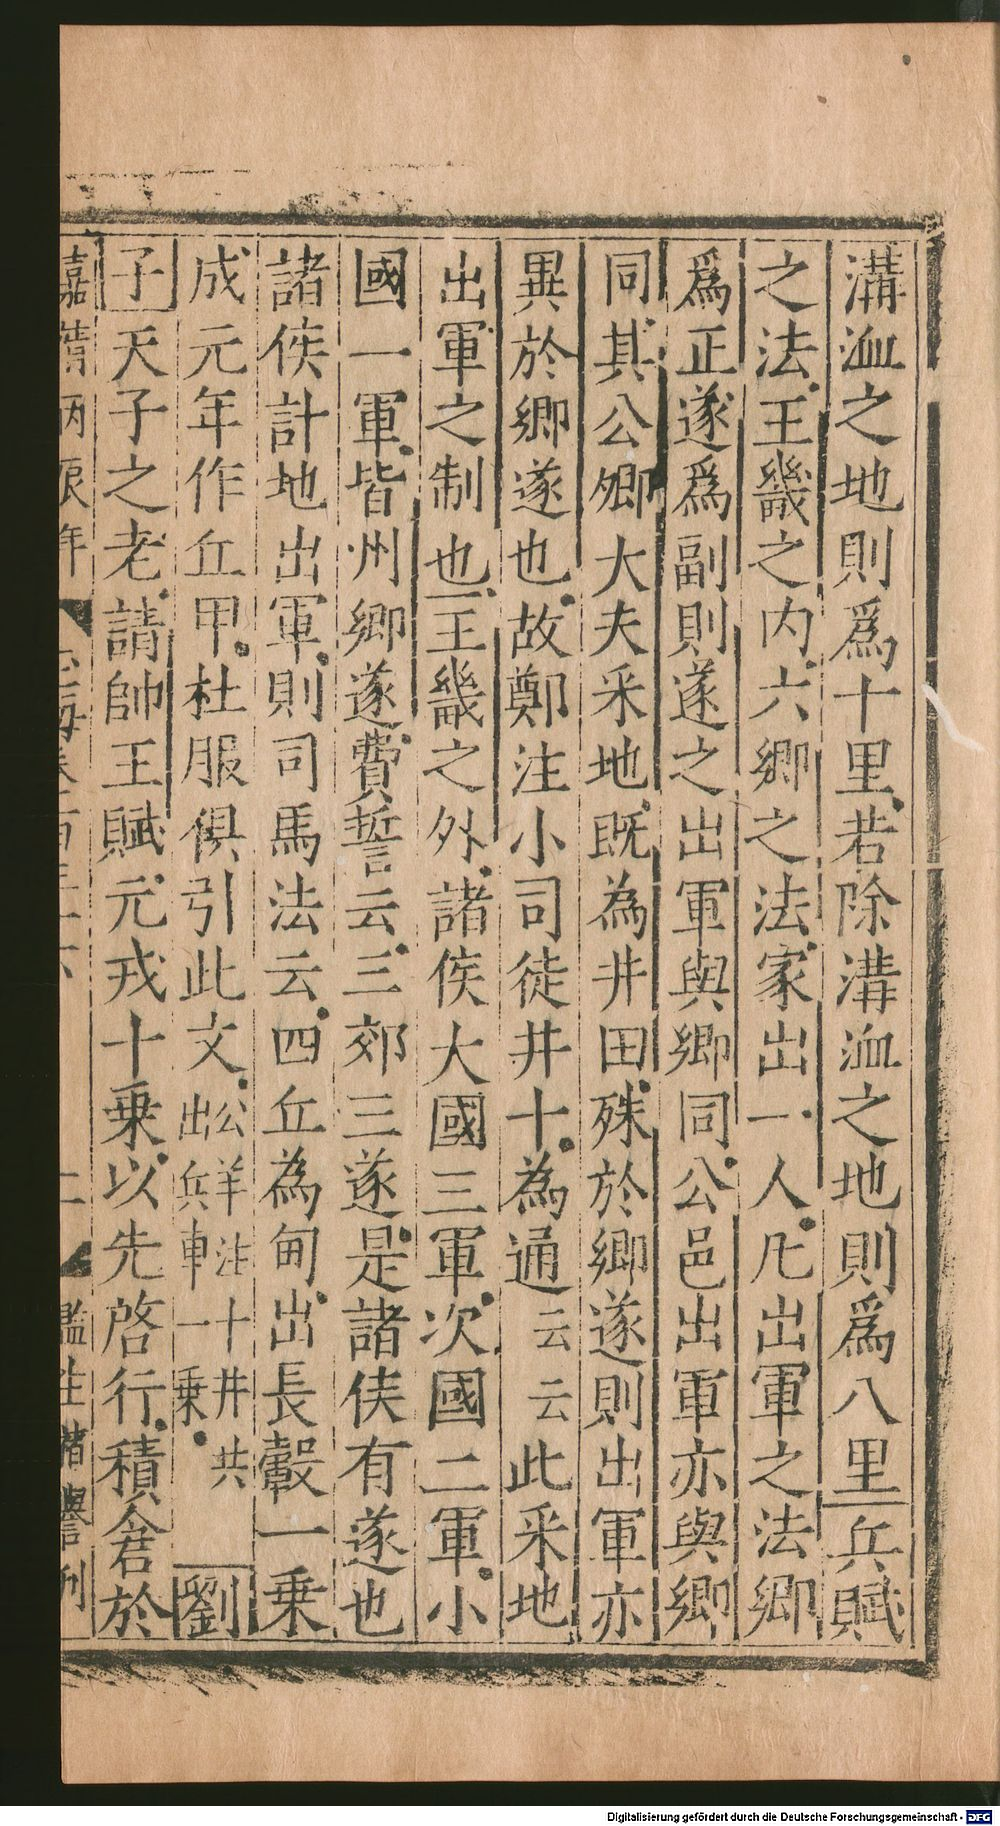 溝洫之地則爲十里若除溝洫之地則爲八里兵賦
之法王畿之内六鄉之法家出一人凡出軍之法鄉
爲正遂爲副則遂之出軍與鄉同公邑出軍亦與鄉
同其公卿大夫采地既為井田殊於鄉遂則出軍亦
異於鄉遂也故鄭注小司徒井十為通云云此采地
出軍之制也王畿之外諸侯大國三軍次國二軍小
國一軍皆州鄉遂費誓云三郊三遂是諸侯有遂也
諸侯計地出軍則司馬法云四丘為甸出長轂一乗
成元年作丘甲杜服俱引此文公羊注十井共出兵車一乗劉
子天子之老請帥王賦元戎十乗以先啓行積倉於
嘉靖丙辰年 二 監生褚譽刊
Digitalisierung gefördert durch die Deutsche Forschungsgemeinschaft - DFG